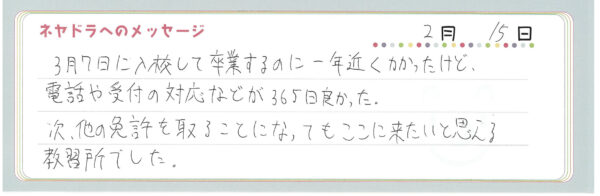 ネヤドラへのメッセージ 2月 15日
3月7日に入校して卒業するのに一年近くかかったけど、
電話や受付の対応などが365日良かった。
次、他の免許を取ることになってもここに来たいと思える
教習所でした。